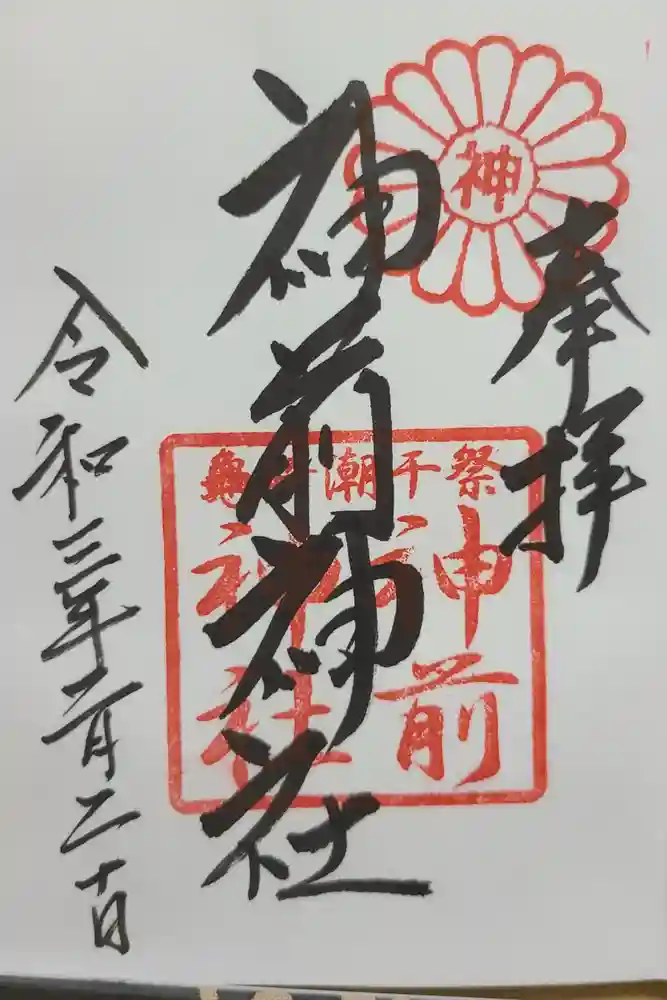 奉拝
神
神前神社
潮干祭
神前
神社
令和三年二月二十日